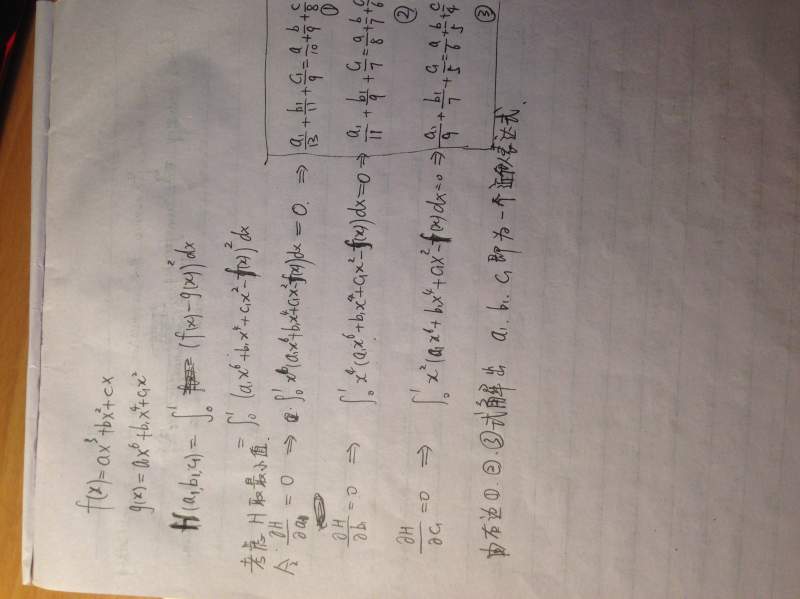 f(x)=ax³+bx²+cx
g(x)=a₁x⁶+b₁x⁴+c₁x²
H(a₁,b₁,c₁)=∫₀¹(f(x)-g(x))²dx
=∫₀¹(a₁x⁶+b₁x⁴+c₁x²-f(x))²dx
考虑H取最小值.
令:∂H/∂a₁=0 ⇒ ∫₀¹x⁶(a₁x⁶+b₁x⁴+c₁x²-f(x))dx=0. ⇒ a₁/13+b₁/11+c₁/9=a/10+b/9+c/8 ①
∂H/∂b₁=0 ⇒ ∫₀¹x⁴(a₁x⁶+b₁x⁴+c₁x²-f(x))dx=0 ⇒ a₁/11+b₁/9+c₁/7=a/8+b/7+c/6 ②
∂H/∂c₁=0 ⇒ ∫₀¹x²(a₁x⁶+b₁x⁴+c₁x²-f(x))dx=0 ⇒ a₁/9+b₁/7+c₁/5=a/6+b/5+c/4 ③
由右边①.②.③式解出 a₁.b₁.c₁即为一个近似表达式.